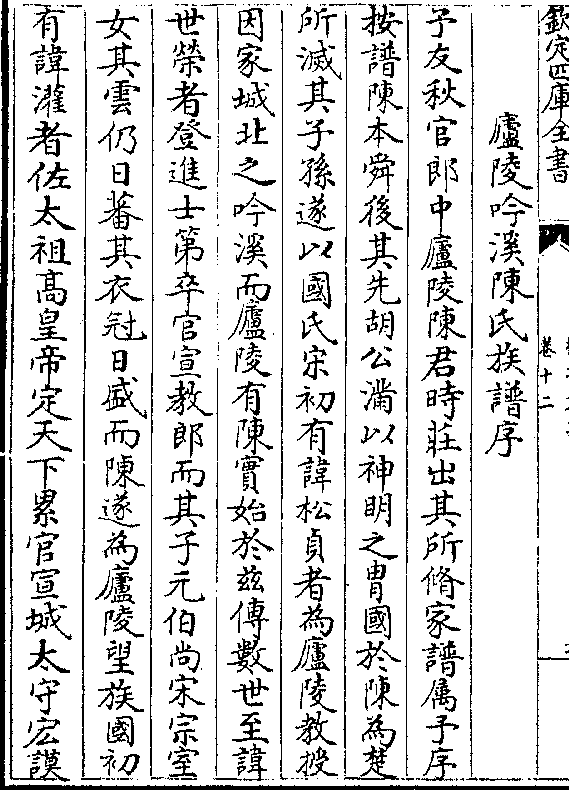 欽定四庫全書
卷十二
廬陵吟溪陳氏族譜序
予友秋官郎中廬陵陳君時莊出其所脩家譜属予序
按譜陳本舜後其先胡公滿以神明之胄國於陳為楚
所滅其子孫遂以國氏宋初有諱松貞者為廬陵教授
因家城北之吟溪而廬陵有陳實始於兹傳數世至諱
世榮者登進士第卒官宣教郎而其子元伯尚宋宗室
女其雲仍日蕃其衣冠日盛而陳遂為廬陵望族國初
有諱灌者佐太祖高皇帝定天下累官宣城太守宏謨